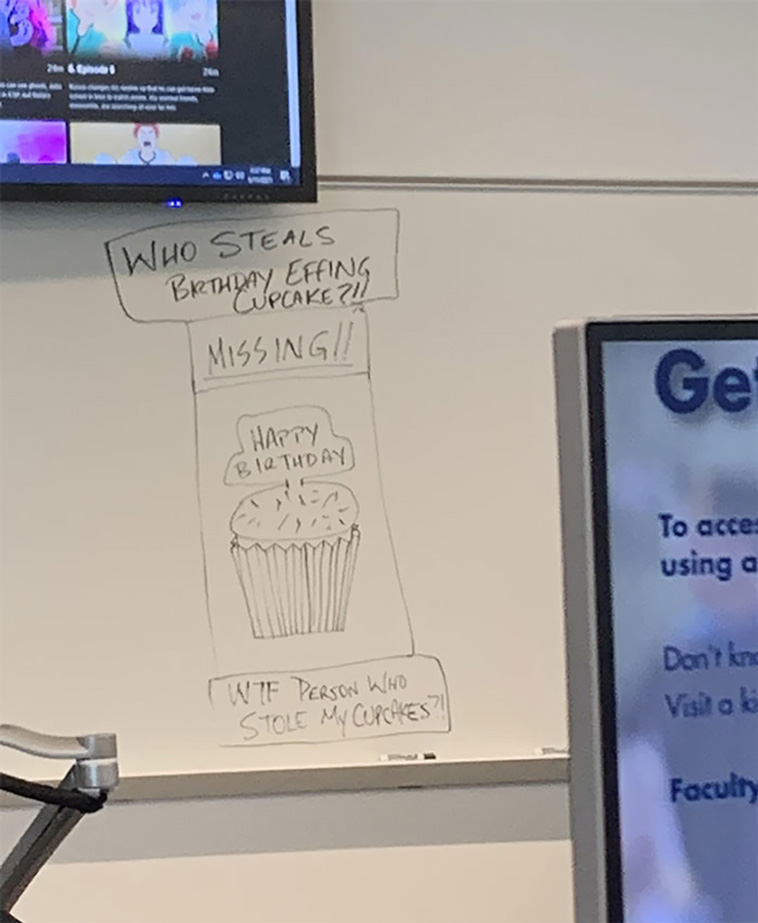 24m 6. Episode 6 24m
WHO STEALS
BIRTHDAY EFFING
CUPCAKE?!!
MISSING!!
HAPPY
BIRTHDAY
WTF PERSON WHO
STOLE MY CUPCAKES?!
Get
To acce
using a
Don't kn
Visit a ki
Faculty